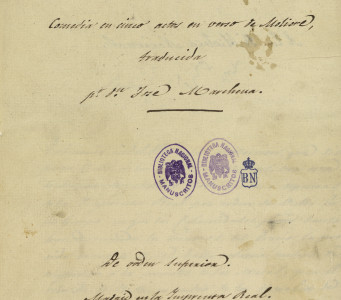 Comedia en cinco actos en verso de Moliere,
traducida
pr. dn. José Marchena.
BIBLIOTECA NACIONAL
MANUSCRITOS
BIBLIOTECA NACIONAL
MANUSCRITOS
BN
De orden superior.
Madrid en la Imprenta Real.